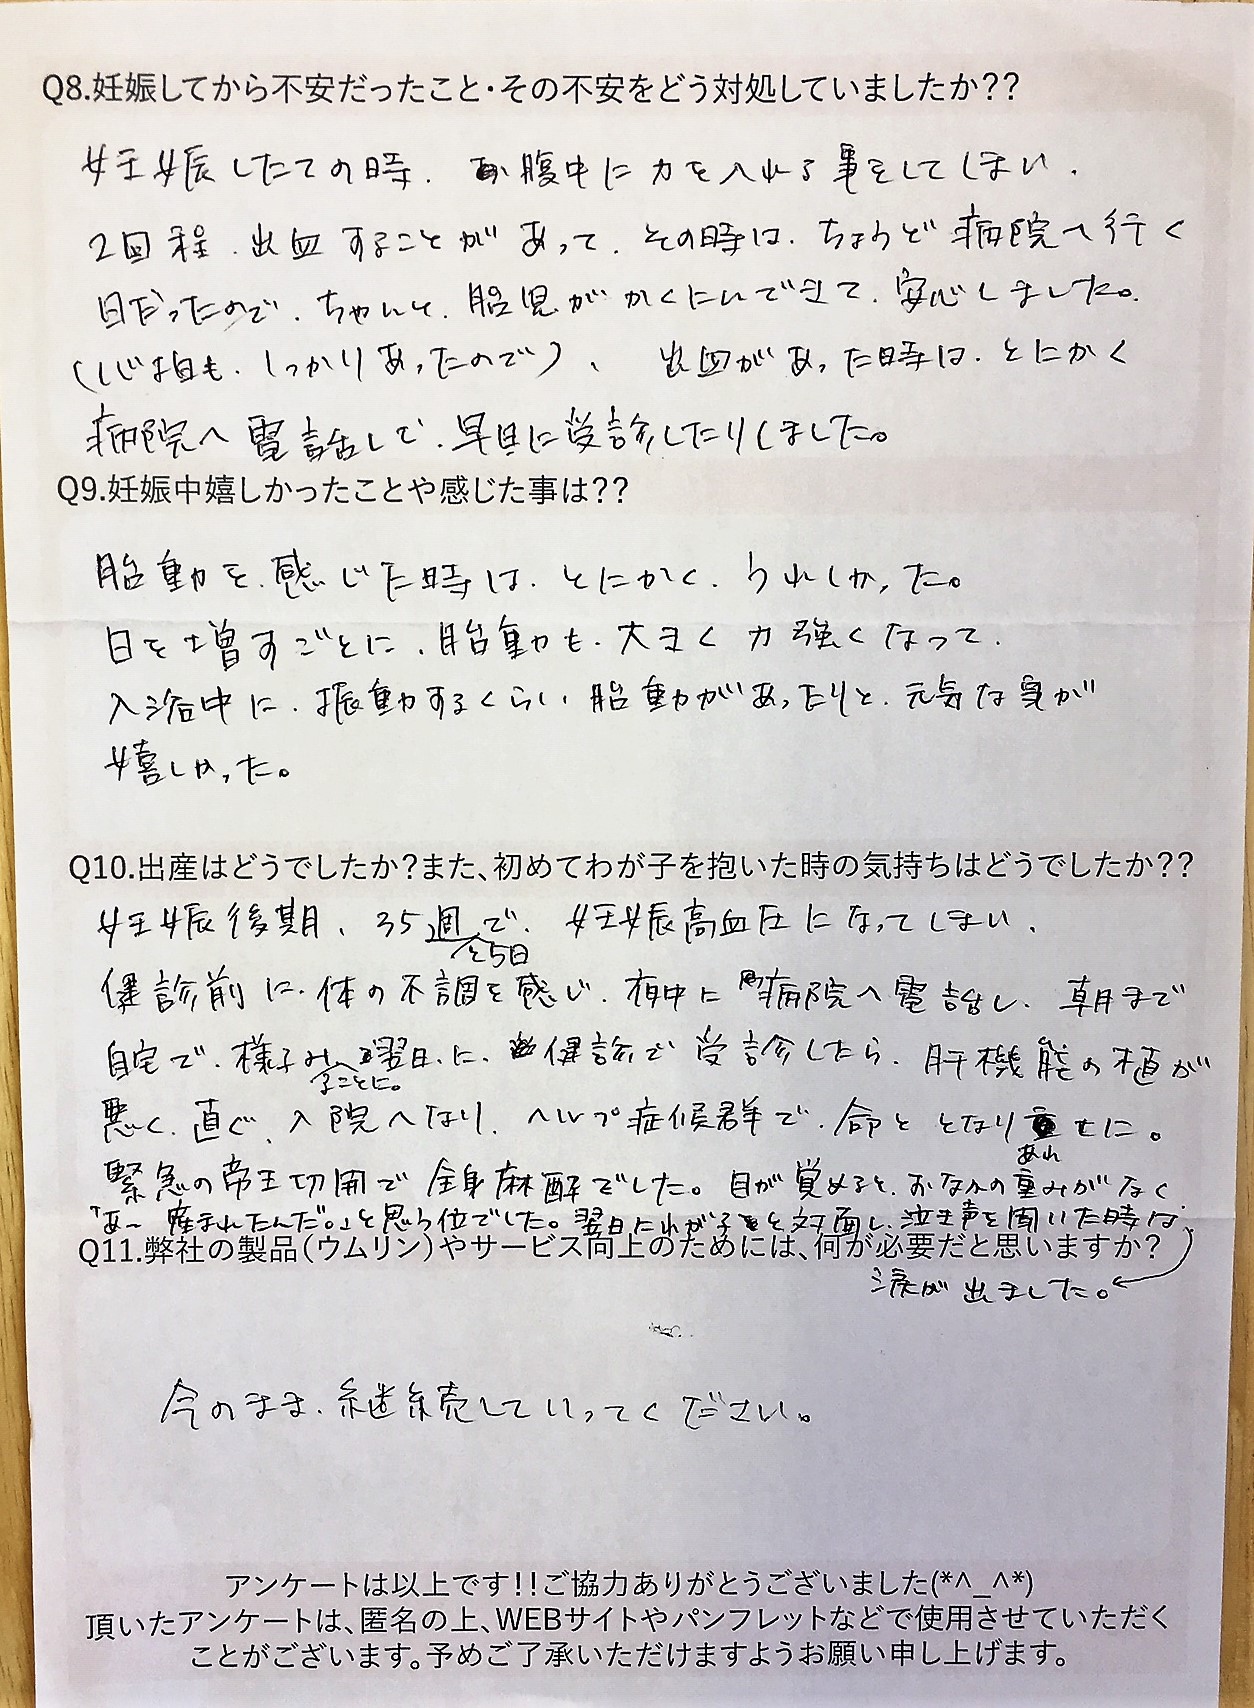 Q8.妊娠してから不安だったこと・その不安をどう対処していましたか??
妊娠したての時、腹中に力を入れる事をしてしまい、
2回程、出血することがあって、その時は、ちょうど病院へ行く
日だったので、ちゃんと、胎児がかくにんできて、安心しました。
(心拍も、しっかりあったので)、出血があった時は、とにかく
病院へ電話して、早目に受診したりしました。
Q9.妊娠中嬉しかったことや感じた事は??
胎動を、感じた時は、とにかく、うれしかった。
日を増すごとに、胎動も、大きく力強くなって、
入浴中に、振動するくらい胎動があったりと、元気な事が
嬉しかった。
Q10.出産はどうでしたか?また、初めてわが子を抱いた時の気持ちはどうでしたか??
妊娠後期、35週で、妊娠高血圧になってしまい、
と5日
健診前に、体の不調を感じ、夜中に病院へ電話し、朝まで
自宅で、様子み翌日に、健診で受診したら、肝機能の値が
ることに。
悪く、直ぐ、入院へなり、ヘルプ症候群で、命ととなり合せに。
あわ
緊急の帝王切開で全身麻酔でした。目が覚めると、おなかの重みがなく
「あ〜産まれたんだ。」と思う位でした。翌日にわが子と対面し、泣き声を聞いた時は
Q11.弊社の製品(ウムリン)やサービス向上のためには、何が必要だと思いますか?
涙が出ました。
今のまま、継続していってください。
アンケートは以上です!!ご協力ありがとうございました(*^_^*)
頂いたアンケートは、匿名の上、WEBサイトやパンフレットなどで使用させていただく
ことがございます。予めご了承いただけますようお願い申し上げます。